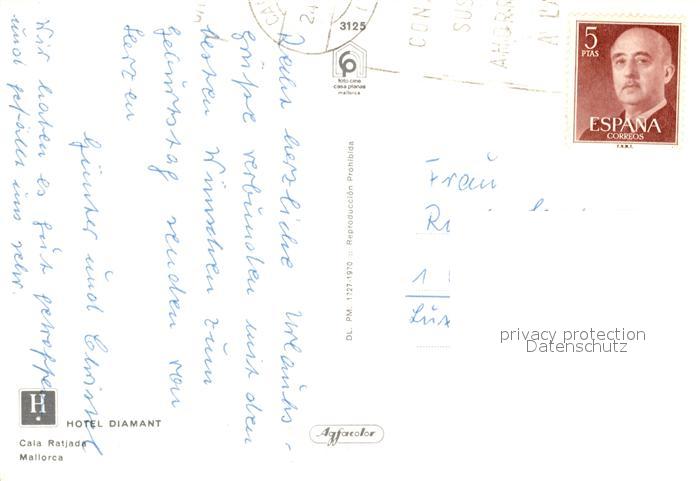 Sehr herzliche Urlaubs-
grüße verbunden mit den
besten Wünschen zum
Geburtstag senden von
Herzen
Günter und Christel
Wir haben es gut getroffen
und gefällt uns sehr.
3125
foto cine
casa planas
mallorca
DL. PM. 1727-1970 Reproducción Prohibida
5
PTAS
ESPAÑA
CORREOS
F.N.M.T.
Frau
1
privacy protection
Datenschutz
H
HOTEL DIAMANT
Cala Ratjada
Mallorca
Agfacolor